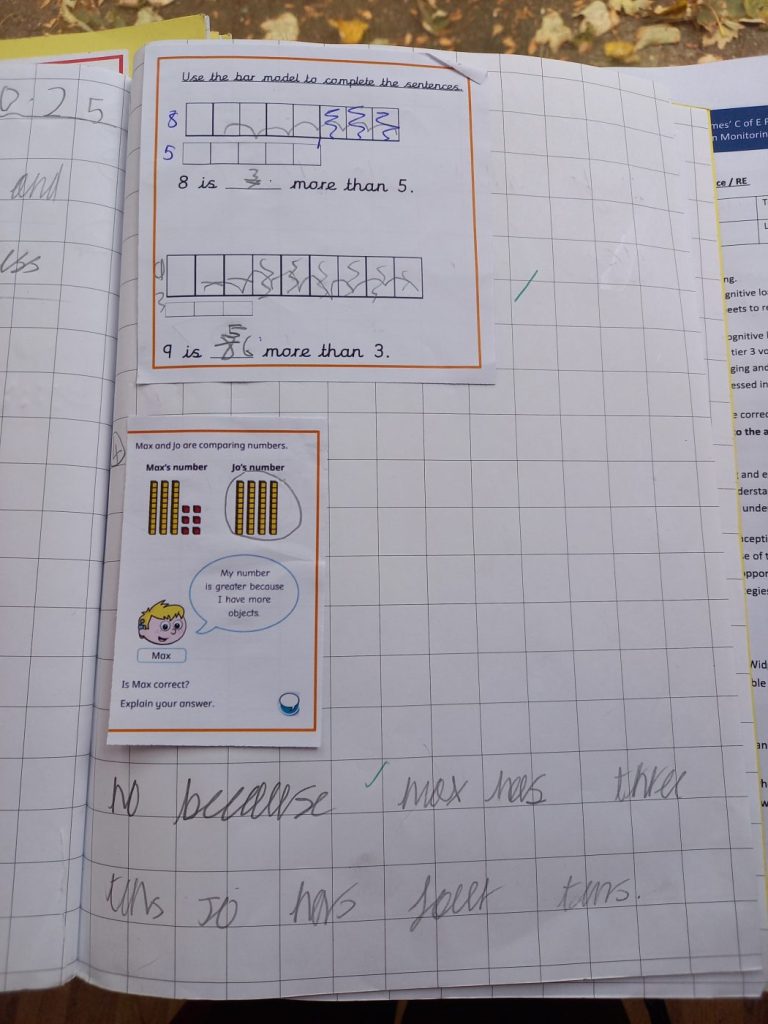 0.25
and
ess
Use the bar model to complete the sentences.
8
5
8 is 3 more than 5.
3
9 is 6 more than 3.
Max and Jo are comparing numbers.
Max's number Jo's number
My number
is greater because
I have more
objects.
Max
Is Max correct?
Explain your answer.
no because max has three
tens Jo has four tens.
mes' C of E P
n Monitorin
ce / RE
T
L
ng.
gnitive lo
eets to re
ognitive l
tier 3 vo
ging and
essed in
e correc
o the a
and e
dersta
unde
ncepti
e of t
oppor
tegies
Wid
ble
an
h
w